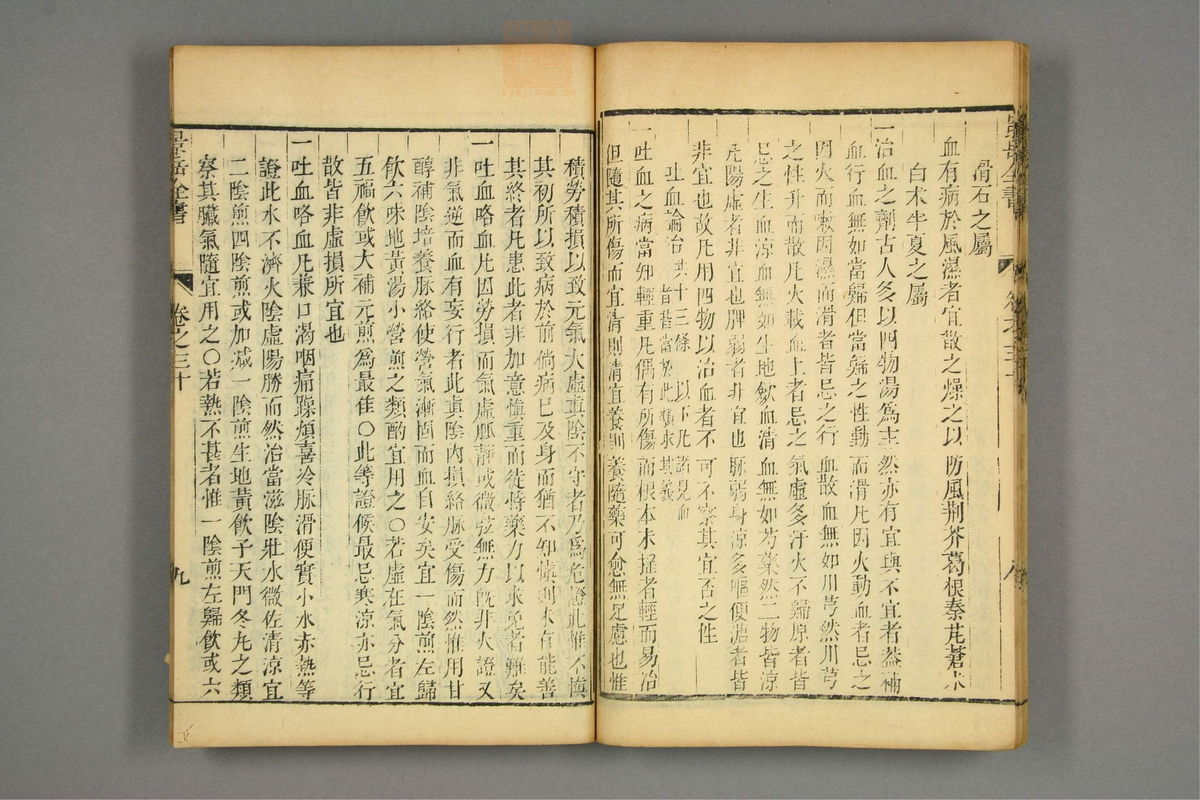 滑石之屬
血有病於風濕者宜散之燥之以防風荆芥葛根秦艽蒼朮
白朮半夏之屬
一治血之劑古人多以四物湯爲主然亦有宜與不宜者葢補
血行血無如當歸但當歸之性動而滑凡因火動血者忌之
因火而嗽因濕而滑者皆忌之行血散血無如川芎然川芎
之性升而散凡火載血上者忌之氣虛多汗火不歸原者皆
忌之生血凉血無如生地歛血清血無如芍藥然二物皆凉
凡陽虛者非宜也脾弱者非宜也脉弱身凉多嘔便溏者皆
非宜也故凡用四物以治血者不可不察其宜否之性
吐血論治 共十三條 以下凡諸見血
者皆當於此類求其義
一吐血之病當知輕重凡偶有所傷而根本未搖者輕而易治
但隨其所傷而宜清則清宜養則養隨藥可愈無足慮也惟
積勞積損以致元氣大虛真陰不守者乃爲危證此惟不慎
其初所以致病於前倘病已及身而猶不知慎則未有能善
其終者凡患此者非加意慎重而徒恃藥力以求免者難矣
一吐血咯血凡因勞損而氣虛脉靜或微弦無力旣非火證又
非氣逆而血有妄行者此真陰內損絡脉受傷而然惟用甘
醇補陰培養脉絡使營氣漸固而血自安矣宜一陰煎左歸
飲六味地黃湯小營煎之類酌宜用之○若虛在氣分者宜
五福飲或大補元煎爲最佳○此等證候最忌寒凉亦忌行
散皆非虛損所宜也
一吐血咯血凡兼口渴咽痛躁煩喜冷脉滑便實小水赤熱等
證此水不濟火陰虛陽勝而然治當滋陰壯水微佐清凉宜
二陰煎四陰煎或加減一陰煎生地黃飲子天門冬丸之類
察其臟氣隨宜用之○若熱不甚者惟一陰煎左歸飲或六
景岳全書
卷之三十
九
景岳全書
卷之三十
八
zysj.com.cn